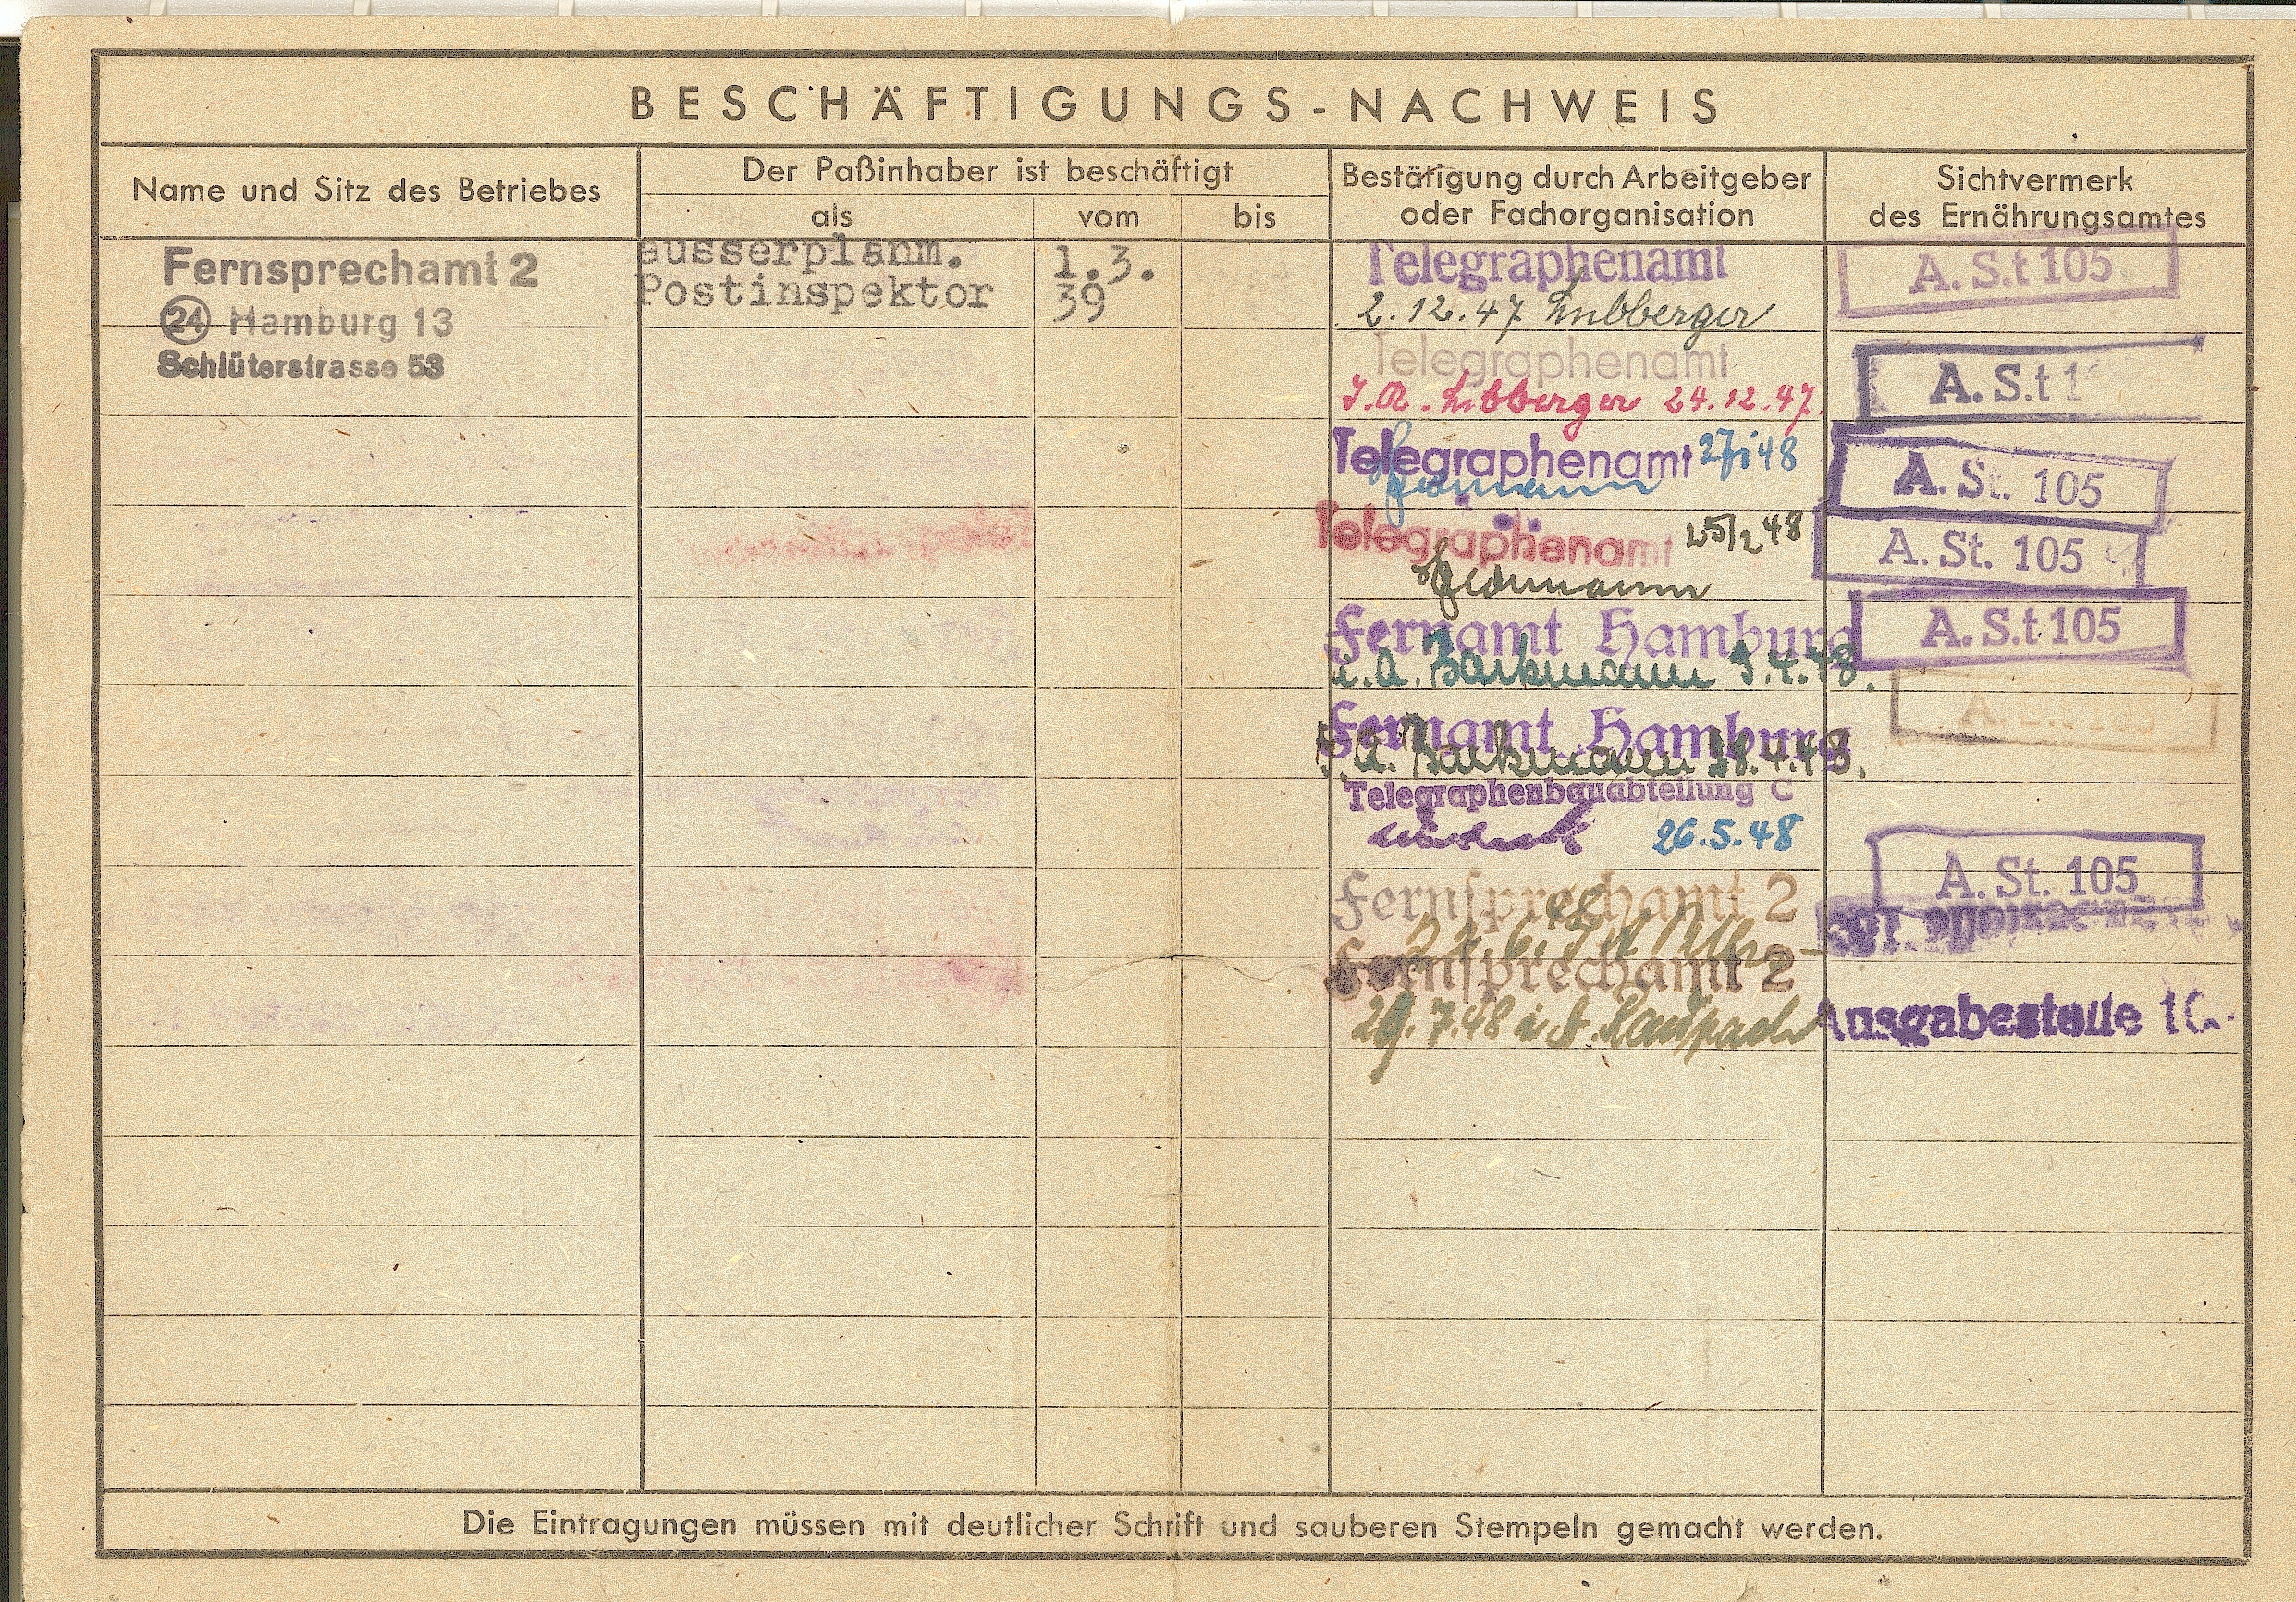 BESCHÄFTIGUNGS-NACHWEIS
Name und Sitz des Betriebes
Der Paßinhaber ist beschäftigt
als
vom
bis
Bestätigung durch Arbeitgeber
oder Fachorganisation
Sichtvermerk
des Ernährungsamtes
Fernsprechamt 2
24 Hamburg 13
Schlüterstrasse 53
ausserplanm.
Postinspektor
1.3.
39
Telegraphenamt
2.12.47 Lubberger
A.S.t 105
Telegraphenamt
I.A. Lubberger 24.12.47.
A.S.t 1
Telegraphenamt 27/1 48
A. St. 105
Telegraphenamt 25/2 48
A. St. 105
Fernamt Hamburg
i.A. Barkmann 9.4.48.
A.S.t 105
Fernamt Hamburg
I.A. Barkmann 28.4.48.
Telegraphenbauabteilung C
26.5.48
A. St. 105
Fernsprechamt 2
Fernsprechamt 2
29.7.48 i.A.
Ausgabestelle
Die Eintragungen müssen mit deutlicher Schrift und sauberen Stempeln gemacht werden.